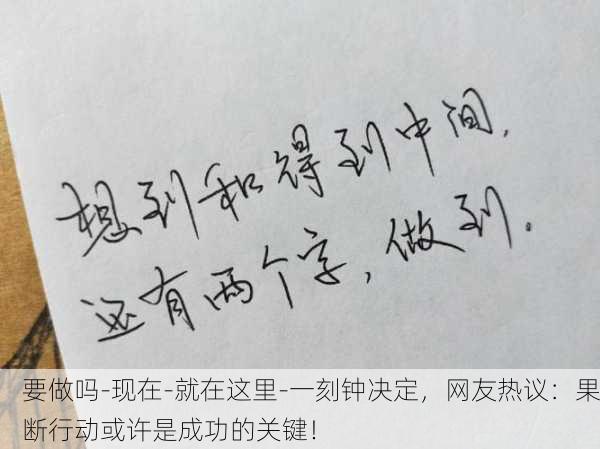 想到和得到中间,
还有两个字,做到.
要做吗-现在-就在这里-一刻钟决定，网友热议：果
断行动或许是成功的关键！